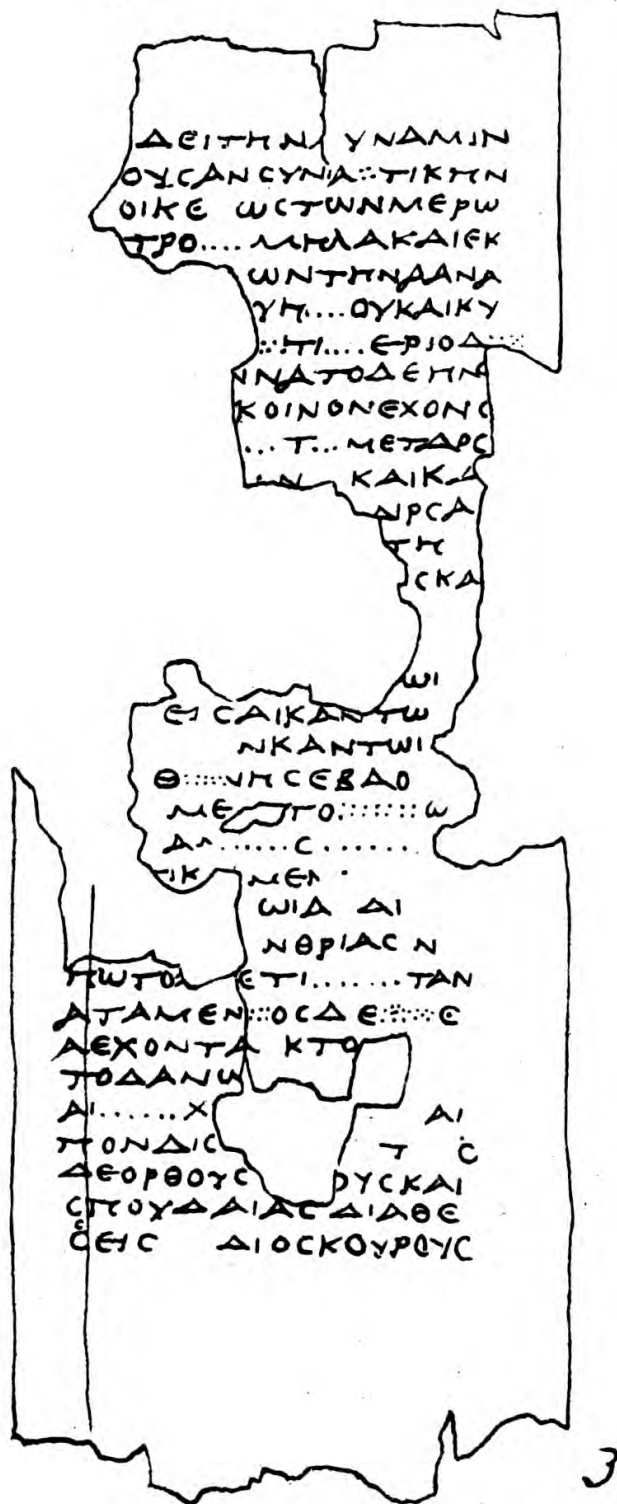 ΔΕΙΤΗΝΔΥΝΑΜΙΝ
ΟΥСΑΝСΥΝΑ::ΤΙΚΗΝ
ΟΙΚΕ ΩСΤΩΝΜΕΡΩ
ΤΡΟ....ΜΗΛΑΚΑΙΕΚ
ΩΝΤΗΝΔΑΝΑ
ΥΗ...ΟΥΚΑΙΚΥ
::ΤΙ....ΕΡΙΟΔ::::
ΝΝΑΤΟΔΕΗΝ
ΚΟΙΝΟΝΕΧΟΝС
...Τ...ΜΕΤΑΡС
Ν ΚΑΙΚΑ
ΑΙΡСΑ
ΤΗ
СΚΑ
ΩΙ
ΕΙСΑΙΚΑΝΤΩ
ΝΚΑΝΤΩΙ
Θ::::ΝΗСΕΒΑΟ
ΜΕ ΤΟ::::::Ω
ΑΛ......С.......
ΙΚ ΜΕΝ
ΩΙΔ ΑΙ
ΝΘΡΙΑС Ν
ΠΩΤΟΛ ΕΤΙ.......ΤΑΝ
ΑΤΑΜΕΝ::ΟСΔΕ::::Є
ΑΕΧΟΝΤΑ ΚΤΟ
ΤΟΔΑΝΩ
ΑΙ......Χ ΑΙ
ΠΟΝΔΙС Τ С
ΔΕΟΡΘΟΥС ΟΥСΚΑΙ
СΠΟΥΔΑΙΑСΔΙΑΘΕ
СΕΙС ΔΙΟСΚΟΥΡΟΥС
3